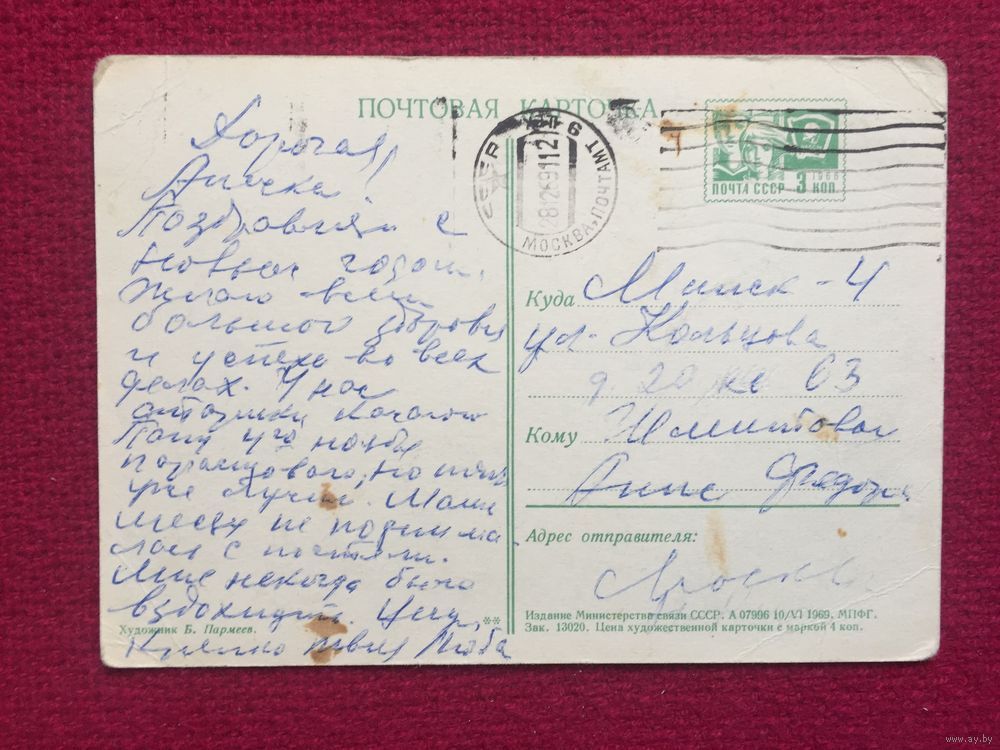 ПОЧТОВАЯ КАРТОЧКА
Дорогая
Анечка!
Поздравляю с
Новым годом.
Желаю всем
большого здоровья
и успеха во всех
делах. У нас
Папу
но
уже лучше. Мама
месяц не поднима
лась с постели.
Мне некогда было
вздохнуть. Целую
Крепко твоя Люба
Художник Б. Пармеев.
**
СССР
МОСКВА, ПОЧТАМТ
281269112
ПОЧТА СССР 3 КОП.
1966
Куда Минск-4
ул. Кольцова
д. 20 кв 63
Кому Шмитовой
Анне
Адрес отправителя:
Москва
Издание Министерства связи СССР. А 07996 10/VI 1969. МПФГ.
Зак. 13020. Цена художественной карточки с маркой 4 коп.
www.ay.by